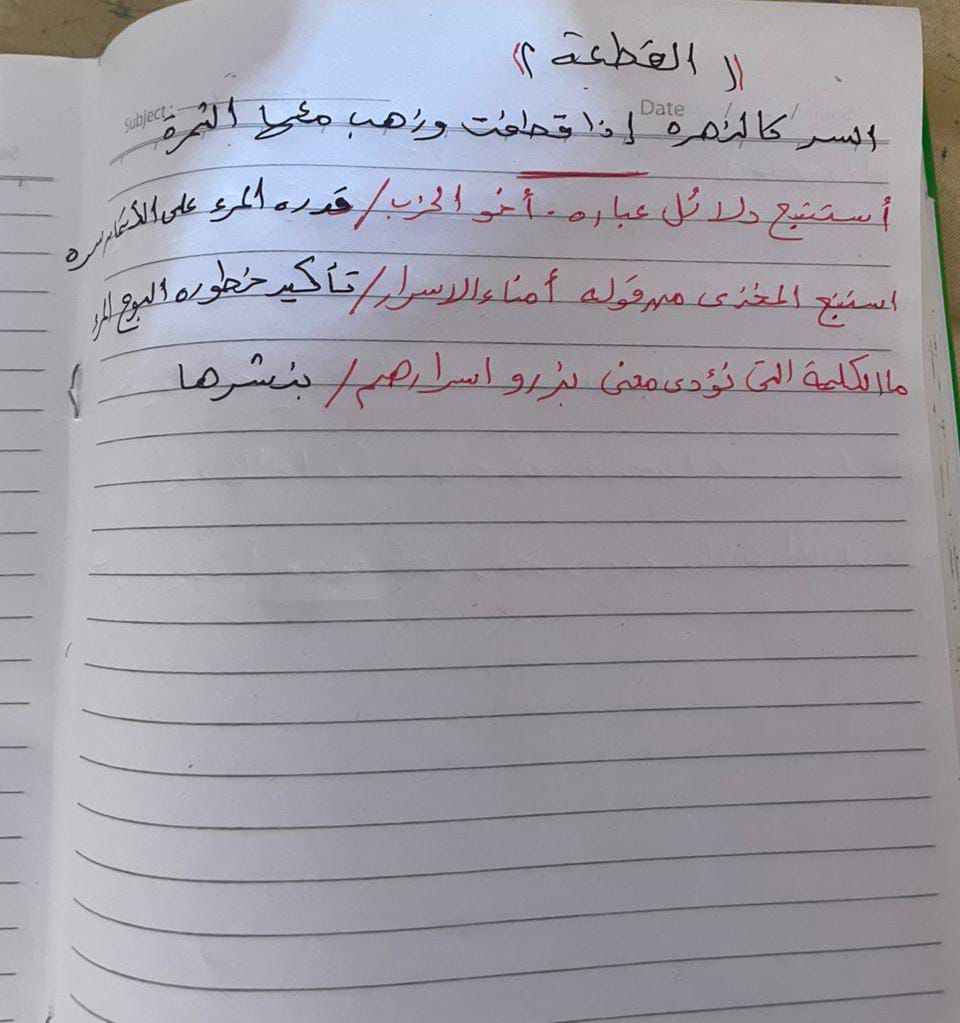 (( القطعة ٢ ))
Subject: Date / /
السر كالزهره إذا قطفت وذهب معها الثمرة
أستنبع دلائل عباره . أخو الحزب / قدره المرء على الأئتمان سره
استنبع المغزى من قوله أمناء الاسرار / تأكيد خطوره البوح المرء
ما الكلمة التي تؤدى معنى بذرو اسرارهم / بنشرها